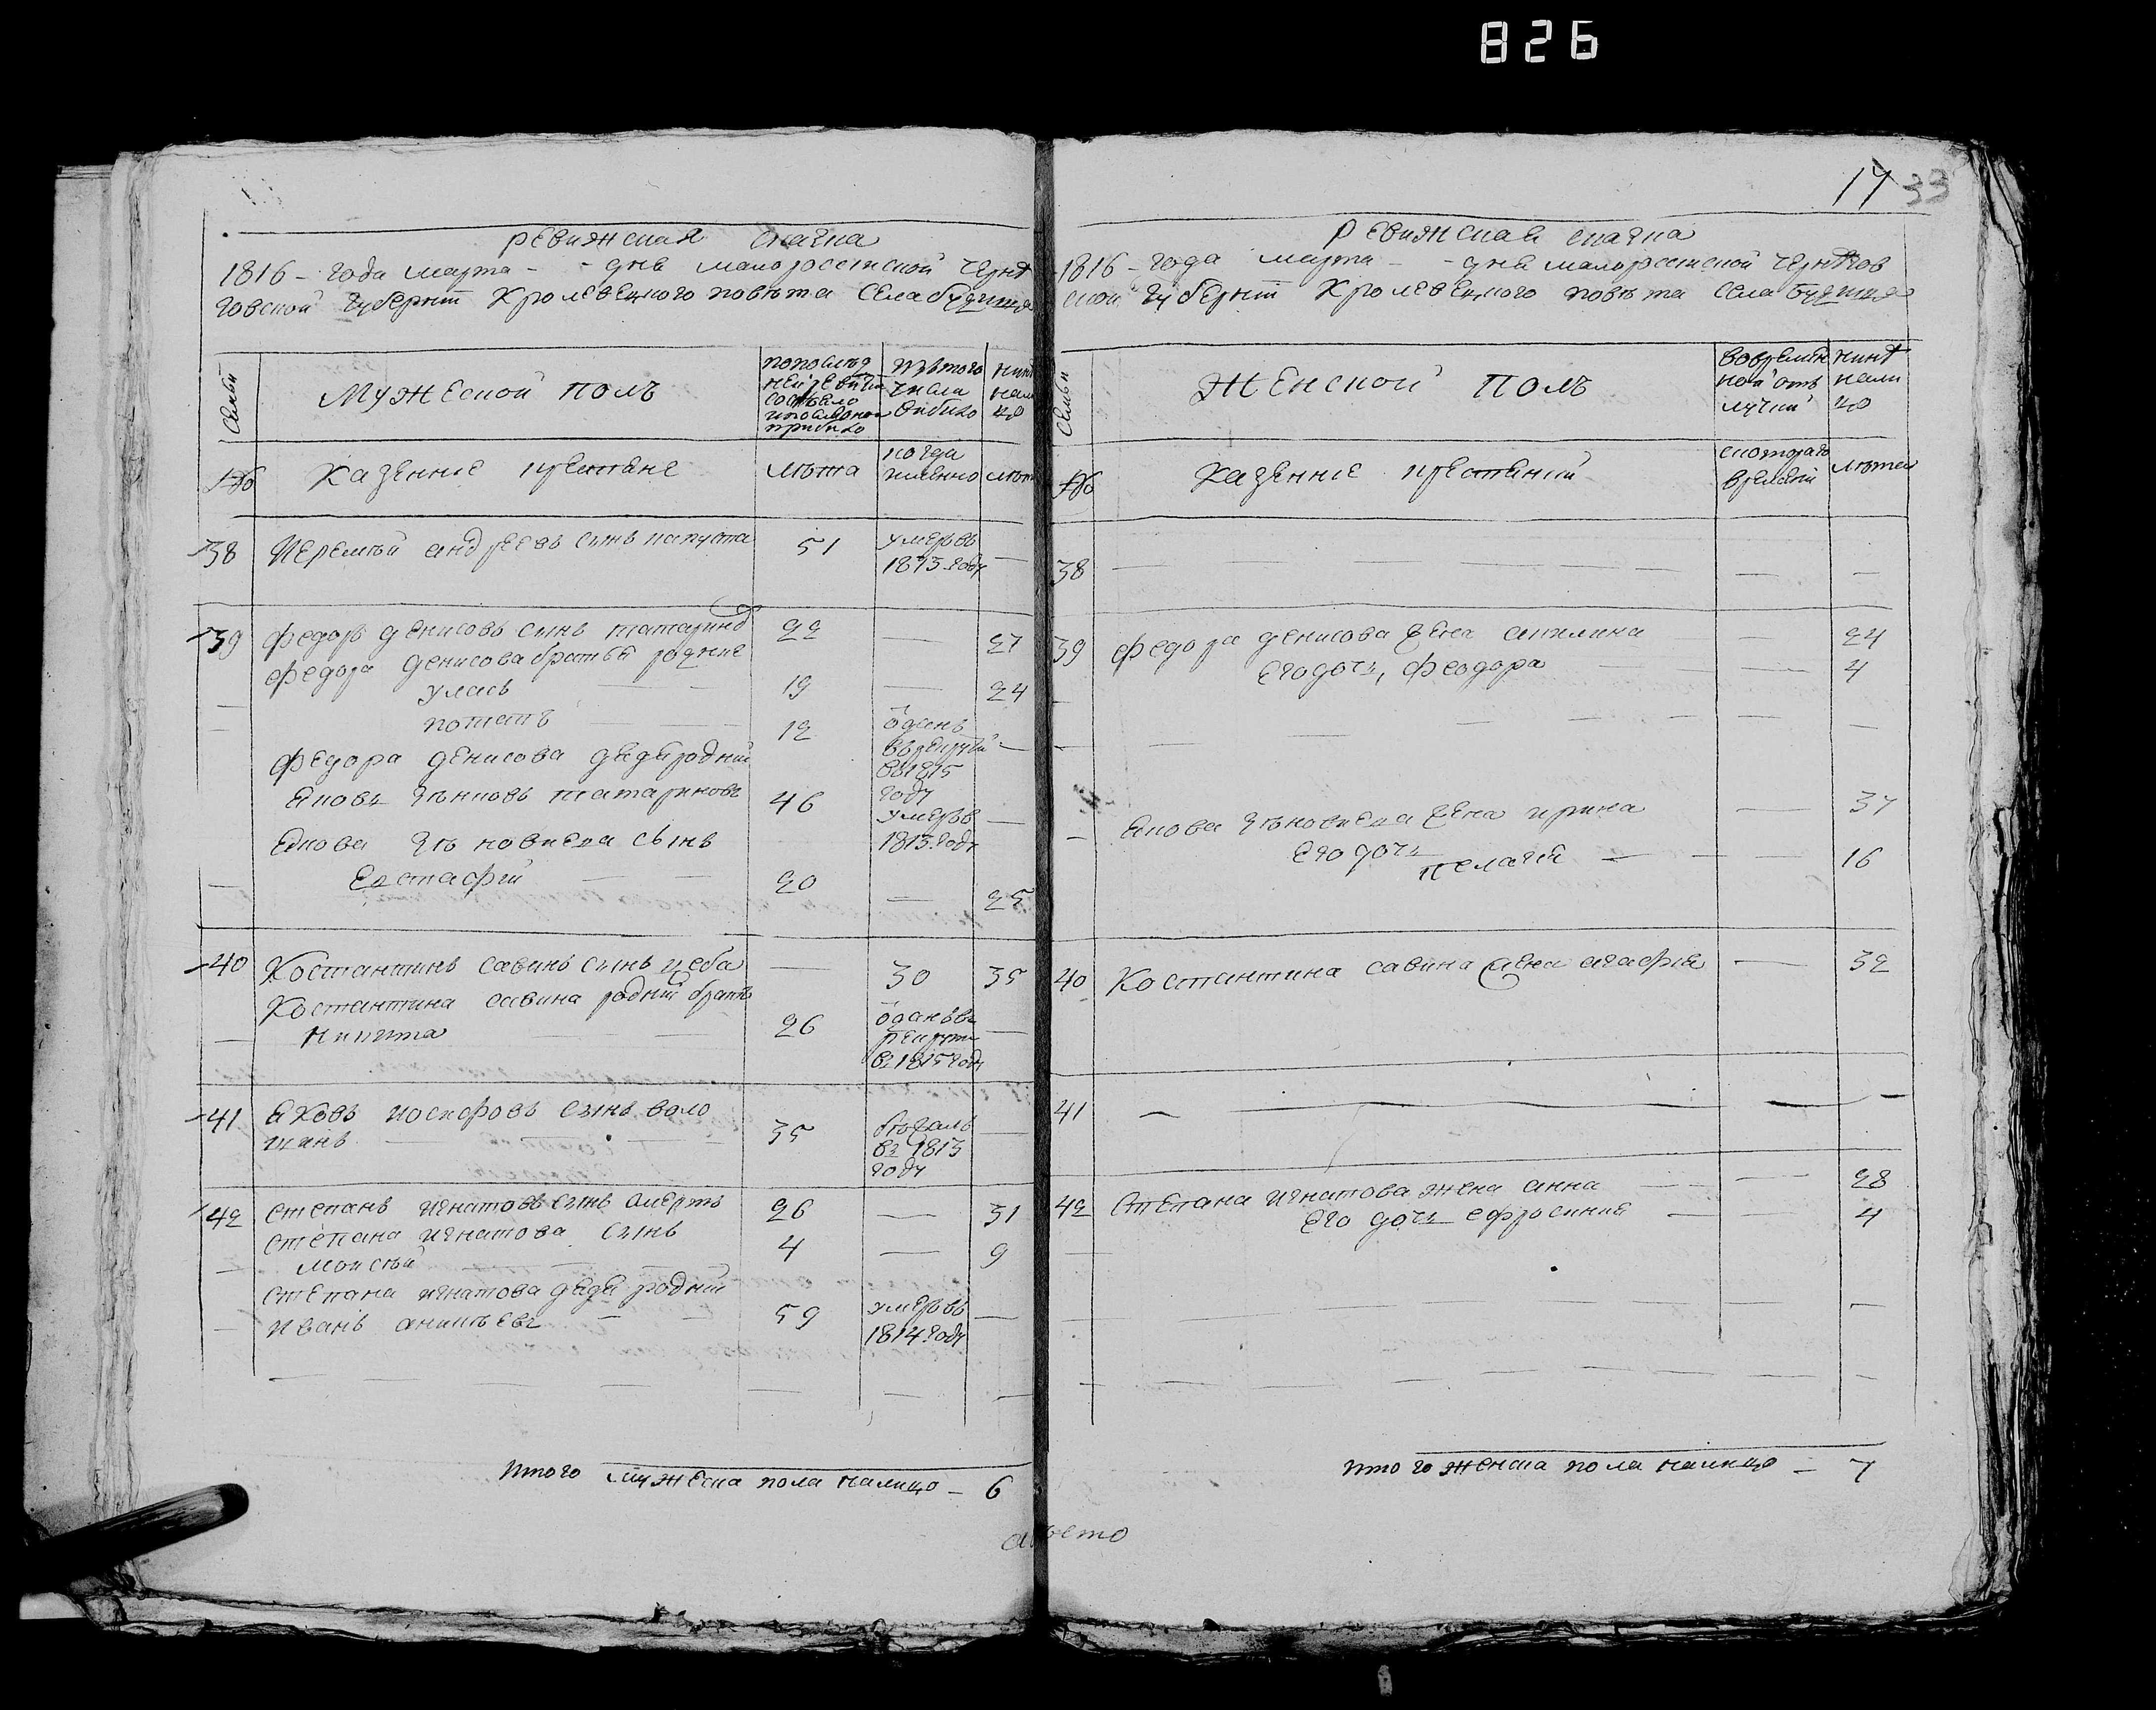 826
17 33
ревижская скаска
1816 - года марта - - дня малоросѣиской черни
говской губернїи Кролевецкого повѣта села
Семьи
Мужеской полъ
по послѣд
ней ревизїи
состояло
и после оной
прибыло
изъ того
числа
выбыло
нинѣ
нали
цо
№
Казеннїе крестяне
лѣта
когда
именно
лѣта
38 Иеремѣй андреевъ синъ капуста 51 умеръ въ —
1813 году
39 Федоръ денисовъ синъ татаринъ 22 — 27
Федора денисова братья роднїе
уласъ — — 19 — 24
— потапъ — — 12 ѿданъ
въ рекрути —
въ 1815
году
Федора денисова дядя роднїй
яковъ татариновъ 46 умеръ въ —
1813 году
якова сынъ
— Евстафїй — — 20 — 25
40 Костантинъ савинъ синъ цеба — 30 35
Костантина савина роднїй братъ
— никита — — 26 ѿданъ въ —
рекрути
въ 1815 году
41 яковъ иосифовъ синъ воло
шинъ — — 35 бѣжалъ —
въ 1813
году
42 степанъ игнатовъ синъ смерть 26 — 31
степана игнатова синъ
— моисѣй — — 4 — 9
степана игнатова дядя роднїй
— иванъ — — 59 умеръ въ —
1814 году
Итого мужеска пола налицо — 6
ревижская скаска
1816 - года марта - - дня малоросѣиской чернѣгов
ской губернїи Кролевецкого повѣта села
Семьи
Женской полъ
во времен
ной отъ
лучки
нинѣ
нали
цо
№
Казеннїе крестянки
с которого
времени
лѣта
38 — — — —
39 Федора денисова жена акилина — 24
Его дочь, Феодора — — 4
якова жена ирина — 37
Его дочь
пелагея — — — 16
40 Костантина савина жена агафия — 32
41 — — — —
42 Степана игнатова жена анна — — 28
Его дочь ефросиния — — 4
Итого женска пола налицо — 7